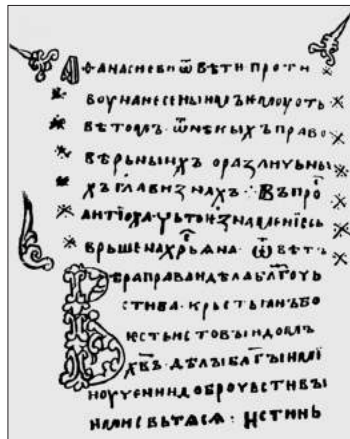 Аѳанасиеви ѿвѣти проти
воу нанесенъиимъ къ
вѣтомъ ѿ нѣкыхъ право
вѣрьныихъ о различьны
хъ главизнахъ ⁘ Въпро
антиоха чьто знамениє съ
врьшена Ѿвѣтъ
Вѣра права и дѣла бл҃гочь
стива · крьстьꙗнъ бо
ѥсть истовъи домъ
х҃въ · дѣлы
и поучении доброчьстивы
ими съвьтасѧ : истинь